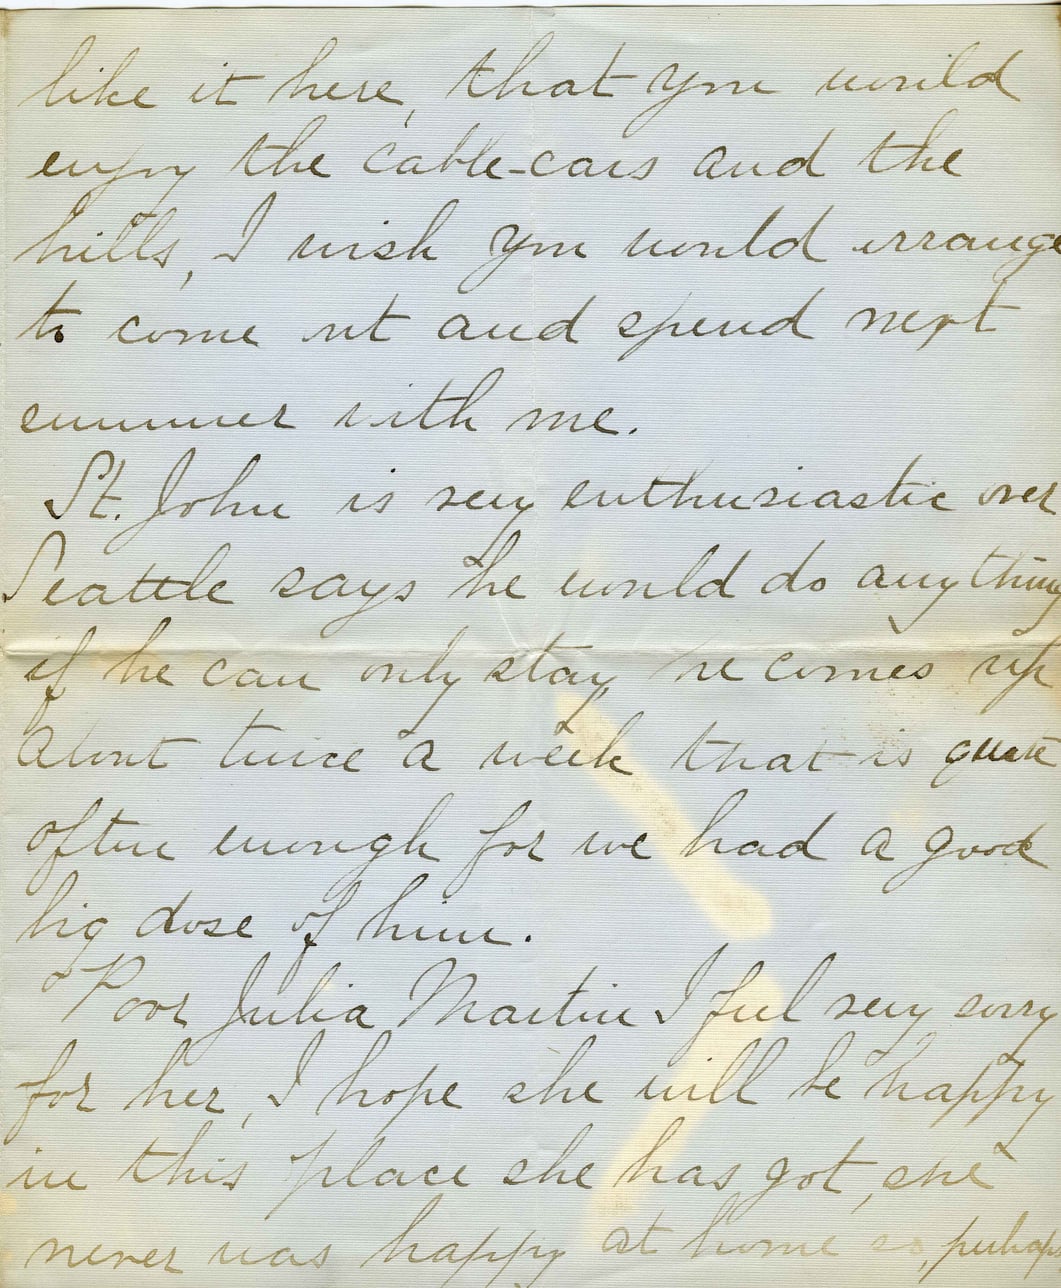 like it here, that you would
enjoy the cable-cars and the
hills, I wish you would arrange
to come out and spend next
summer with me.
St. John is very enthusiastic over
Seattle says he would do anything
if he can only stay, he comes up
about twice a week that is quite
often enough for we had a good
big dose of him.
Poor Julia Martin I feel very sorry
for her, I hope she will be happy
in this place she has got, she
never was happy at home so, perhaps